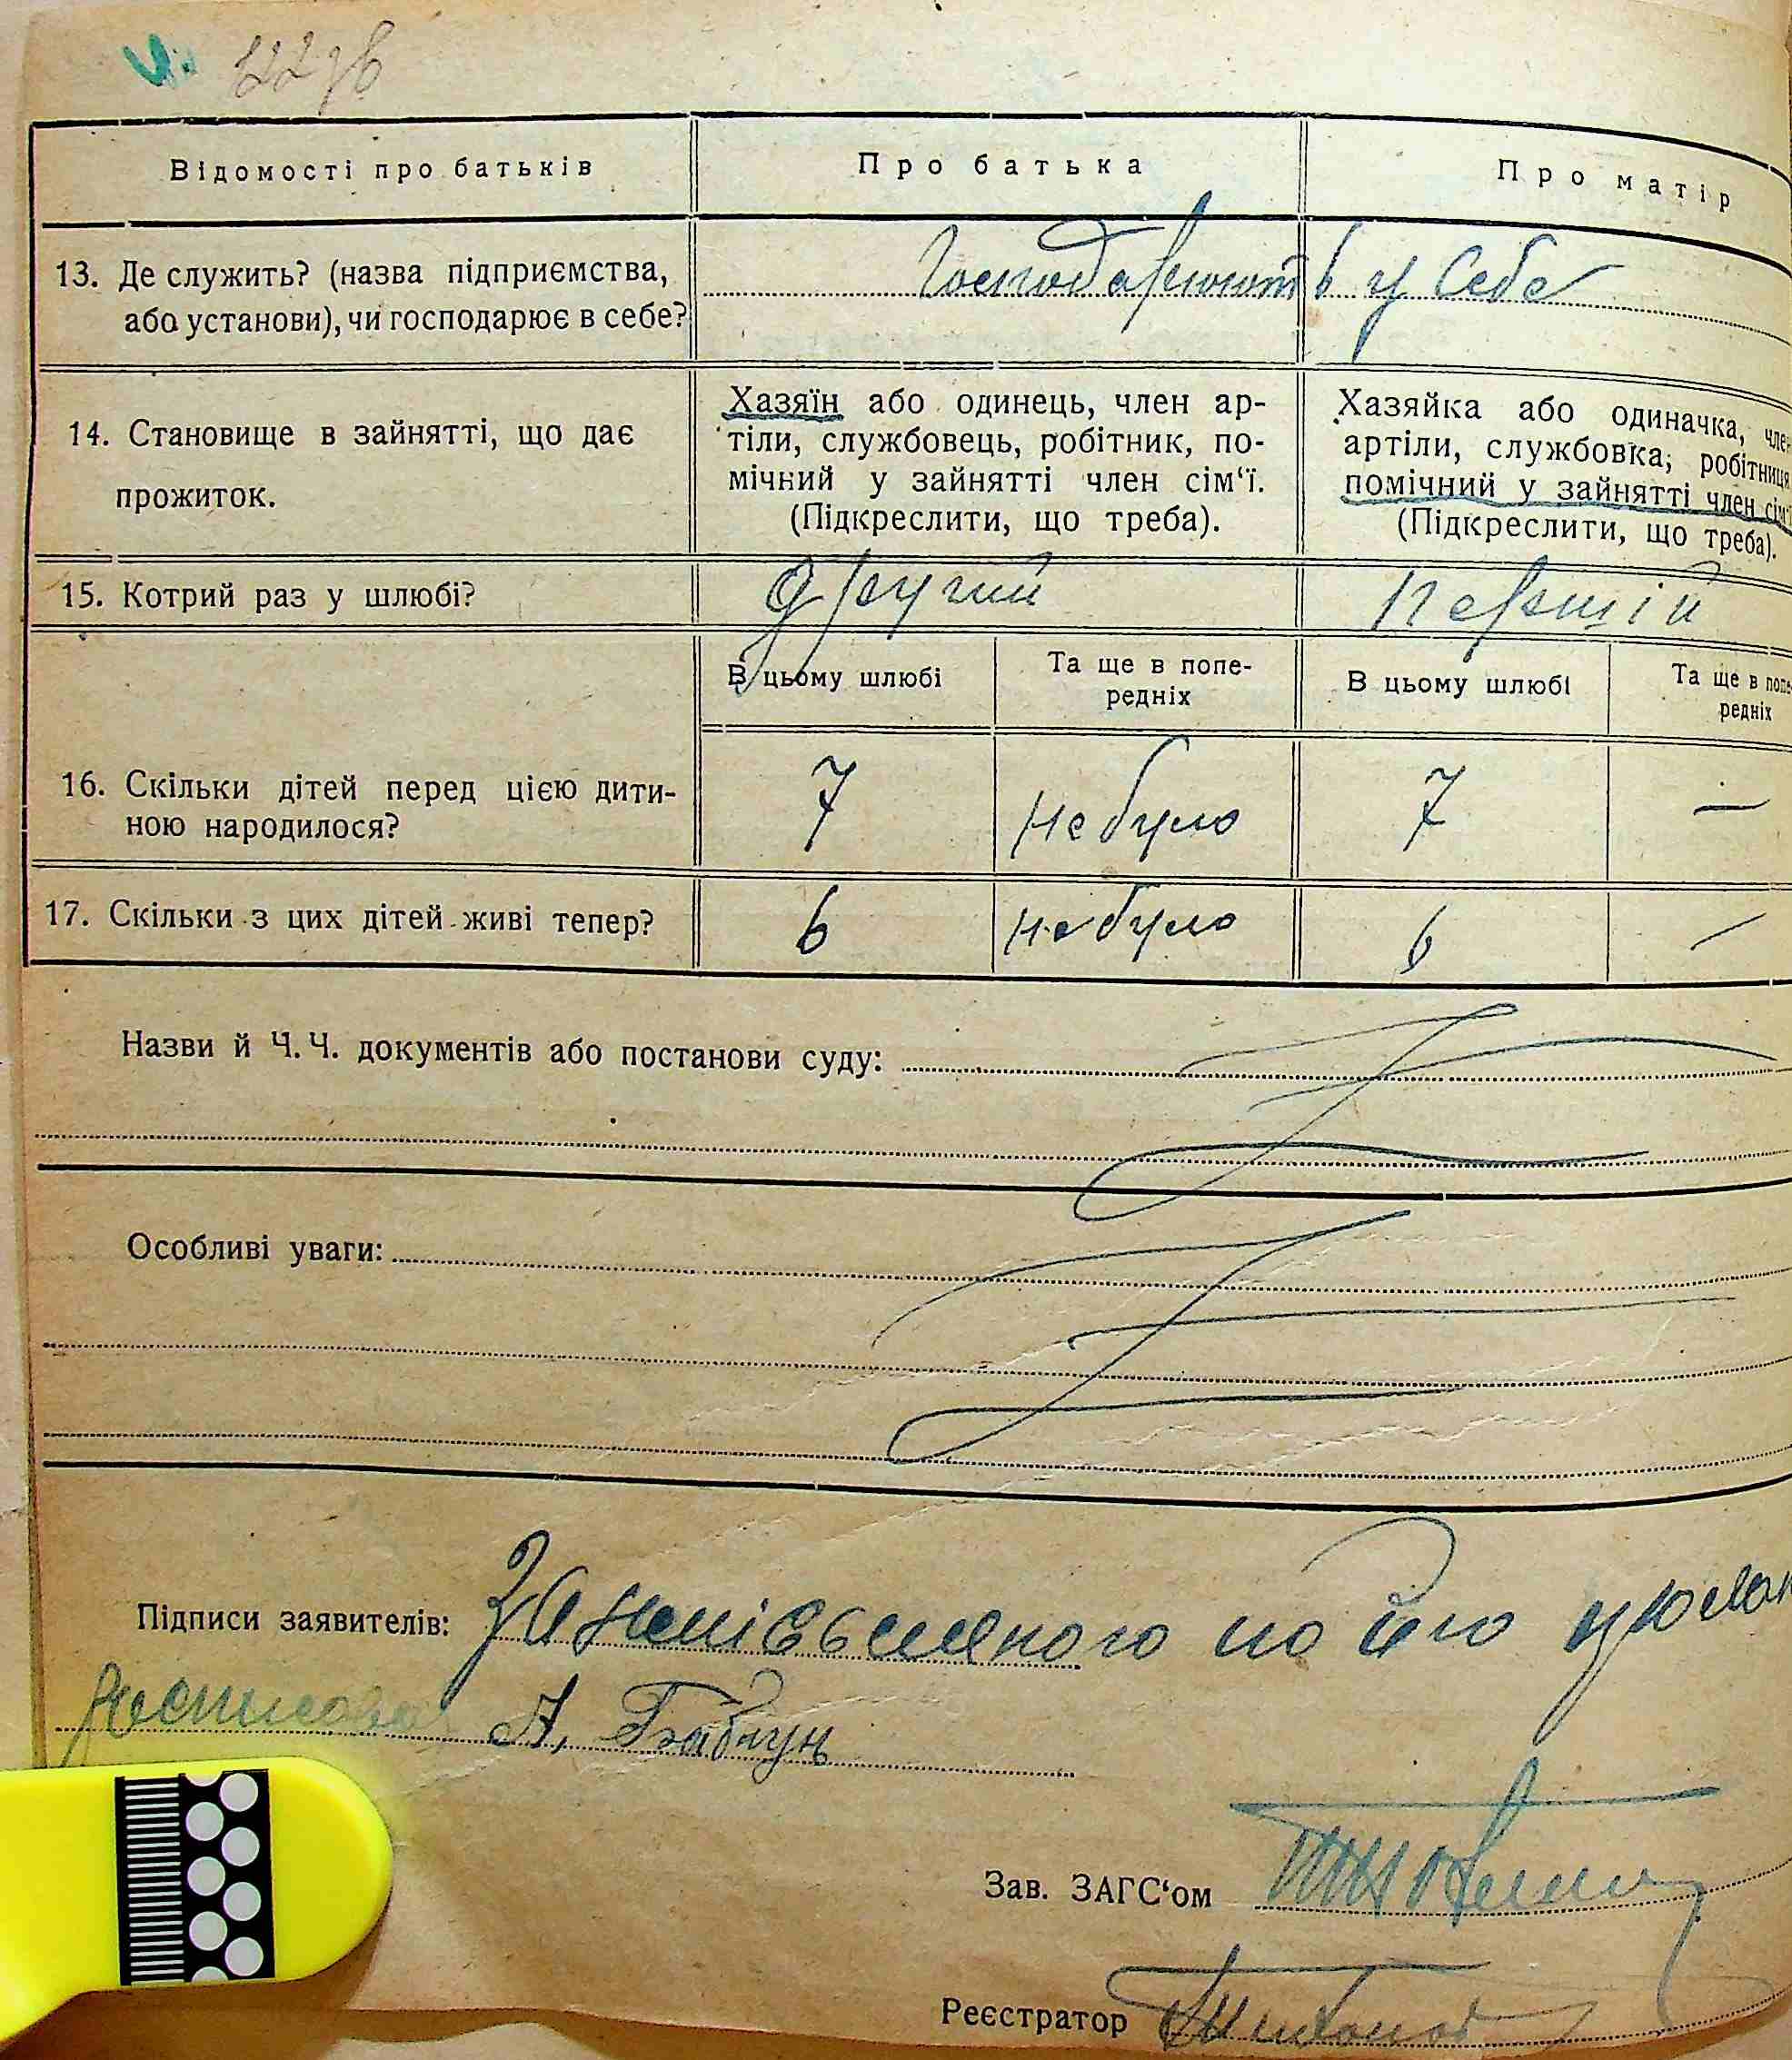 Відомості про батьків Про батька Про матір
13. Де служить? (назва підприємства, або установи), чи господарює в себе?
Господарюють у себе
14. Становище в зайнятті, що дає прожиток.
Хазяїн або одинець, член ар-
тіли, службовець, робітник, по-
мічний у зайнятті член сім‘ї.
(Підкреслити, що треба).
Хазяйка або одиначка, член
артіли, службовка, робітниця
помічний у зайнятті член сім‘ї
(Підкреслити, що треба).
15. Котрий раз у шлюбі? другий першій
В цьому шлюбі Та ще в попе-
редніх В цьому шлюбі Та ще в попе-
редніх
16. Скільки дітей перед цією дити-
ною народилося? 7 не було 7 —
17. Скільки з цих дітей живі тепер? 6 не було 6 —
Назви й Ч. Ч. документів або постанови суду:
Особливі уваги:
Підписи заявителів: За неписьменого по його
А. Бабчун
Зав. ЗАГС‘ом
Реєстратор